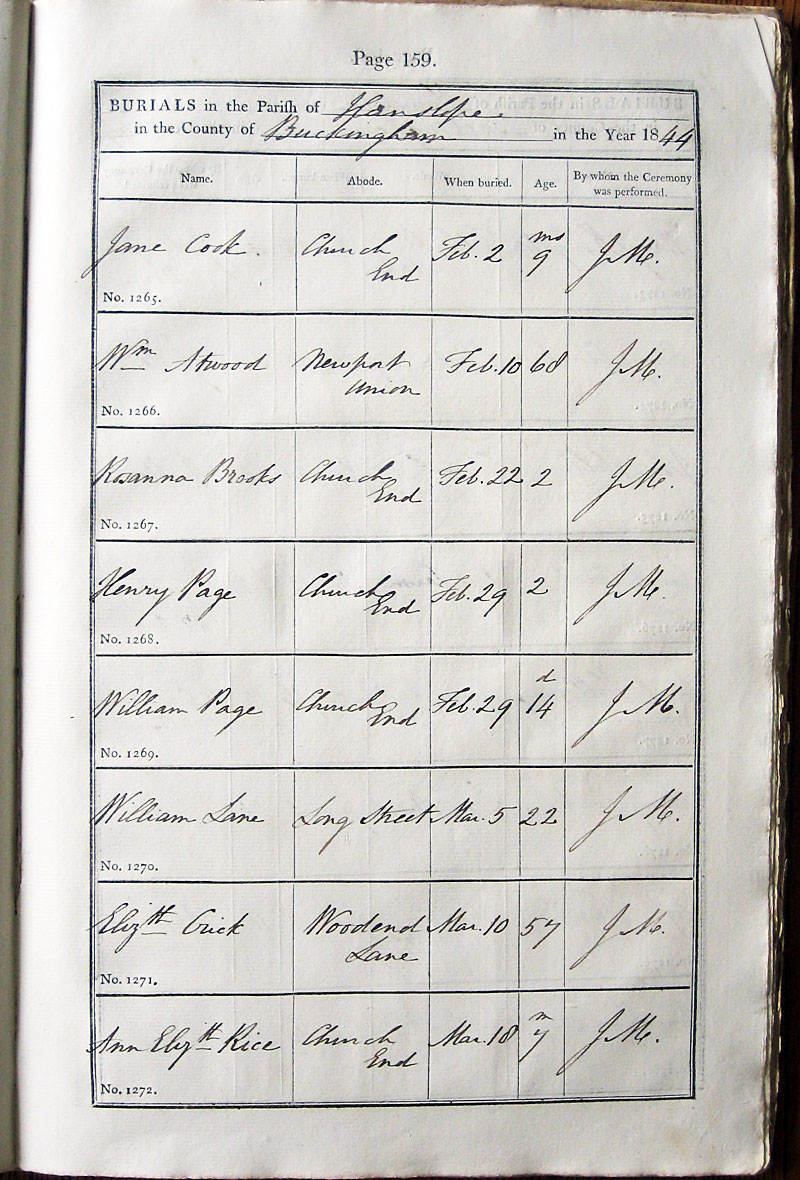 Page 159.
BURIALS in the Parish of Hanslope.
in the County of Buckingham in the Year 1844
Name. Abode. When buried. Age. By whom the Ceremony
was performed.
Jane Cook. Church End Feb. 2 ms 9 J M.
No. 1265.
Wm Atwood Newport Union Feb. 10 68 J M.
No. 1266.
Rosanna Brooks Church End Feb. 22 2 J M.
No. 1267.
Henry Page Church End Feb. 29 2 J M.
No. 1268.
William Page Church End Feb. 29 d 14 J M.
No. 1269.
William Lane Long Street Mar. 5 22 J M.
No. 1270.
Elizth Crick Woodend Lane Mar. 10 57 J M.
No. 1271.
Ann Elizth Rice Church End Mar. 18 m 7 J M.
No. 1272.